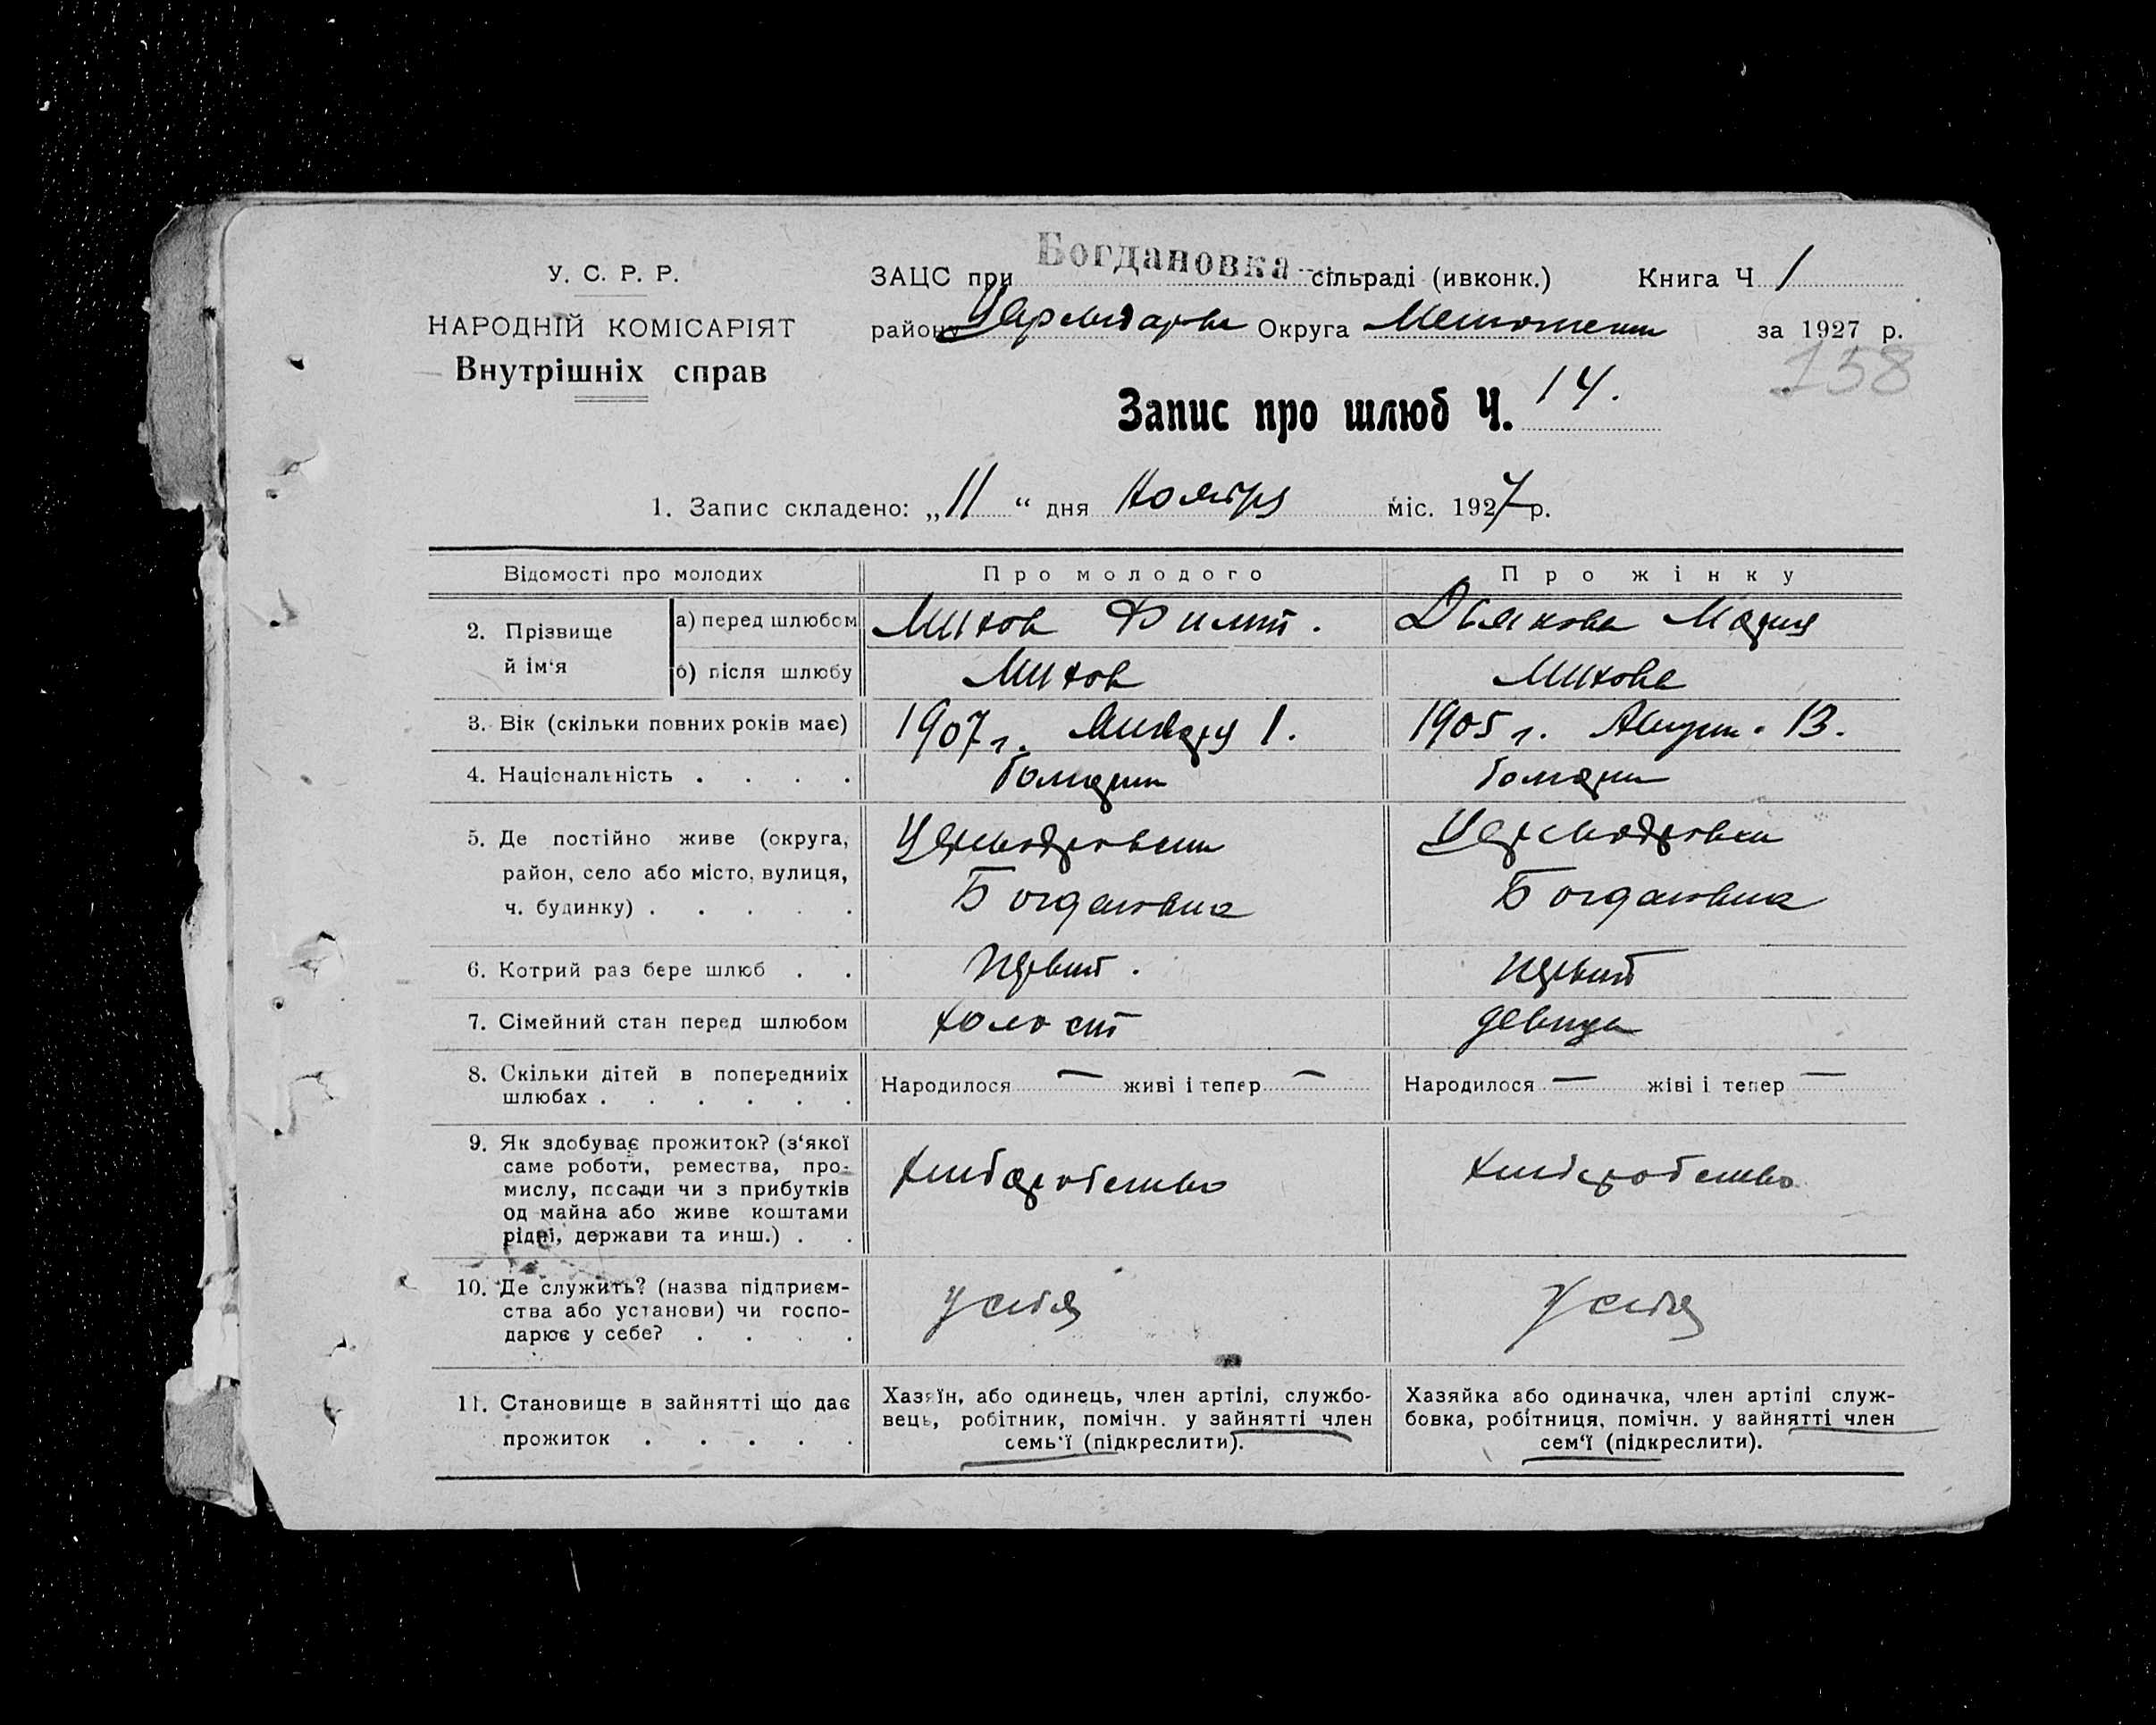 Богдановка
У. С. Р. Р.
ЗАЦС при сільраді (ивконк.) Книга Ч 1
НАРОДНІЙ КОМІСАРІЯТ
району Округа за 1927 р.
Внутрішніх справ
158
Запис про шлюб Ч. 14.
1. Запис складено: „11“ дня Ноября міс. 1927 р.
Відомості про молодих
Про молодого
Про жінку
2. Прізвище й ім‘я
а) перед шлюбом
Михов Филип.
Дьякова Мария
б) після шлюбу
Михов
Михова
3. Вік (скільки повних років має)
1907 г. Января 1.
1905 г. Август. 13.
4. Національність . . . .
Болгарин
5. Де постійно живе (округа,
район, село або місто, вулиця,
ч. будинку) . . . . .
Богдановка
Богдановка
6. Котрий раз бере шлюб . .
первий.
первий
7. Сімейний стан перед шлюбом
холост
девица
8. Скільки дітей в попередниіх
шлюбах . . . . . .
Народилося — живі і тепер —
Народилося — жіві і тепер —
9. Як здобуває прожиток? (з‘якої
саме роботи, ремества, про-
мислу, посади чи з прибутків
од майна або живе коштами
рідні, держави та инш.) . .
хлиборобство
хлиборобство
10. Де служить? (назва підприєм-
ства або установи) чи госпо-
дарює у себе? . . . .
у себя
у себя
11. Становище в зайнятті що дає
прожиток . . . . .
Хазяїн, або одинець, член артілі, службо-
вець, робітник, помічн. у зайнятті член
семь‘ї (підкреслити).
Хазяйка або одиначка, член артілі служ-
бовка, робітниця, помічн. у зайнятті член
сем‘ї (підкреслити).